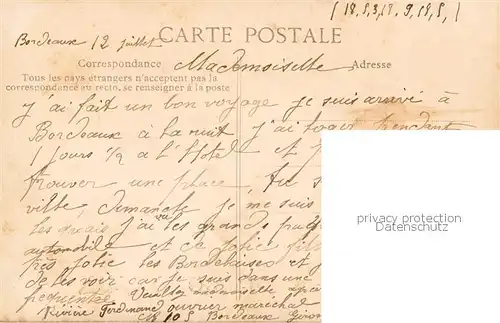 (18.5.3.18.9.18.5.)
Bordeaux 12 juillet
CARTE POSTALE
Correspondance Mademoiselle Adresse
Tous les pays étrangers n'acceptent pas la
correspondance au recto, se renseigner à la poste
j'ai fait un bon voyage je suis arrivé à
Bordeaux à la nuit j'ai loger pendant
1 jours 1/2 a l'Hotel et
trouver une place,
ville, dimanche je me suis
les quais j'ai vu les grands
automobile et de jolies
très jolie les Bordelaises et
de les voir car je suis dans une
Veuillez mademoiselle
Rivière Ferdinand ouvrier marechal
Bordeaux
privacy protection
www.delcampe.net